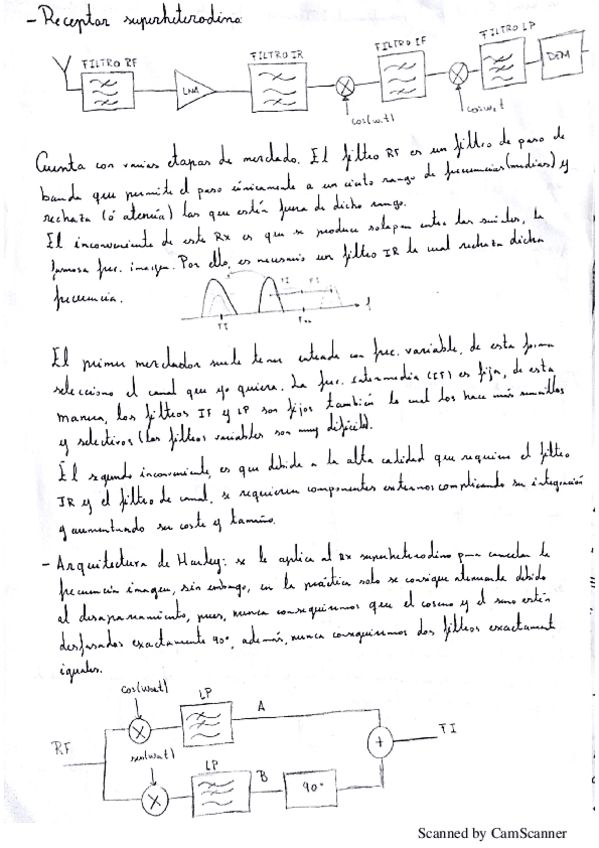 - Receptor superheterodino
FILTRO RF
LNA
FILTRO IR
cos(w₁t)
FILTRO IF
cosw₂t
FILTRO LP
DEM
Cuenta con varias etapas de mezclado. El filtro RF es un filtro de paso de
banda que permite el paso únicamente a un cierto rango de frecuencias (medias) y
rechaza (ó atenúa) las que estén fuera de dicho rango.
El inconveniente de este Rx es que se produce solapam entre las señales, la
famosa frec. imagen. Por ello, es necesario un filtro IR la cual rechaza dicha
frecuencia.
FI
FI
FI
f
El primer mezclador suele tener entrada con frec. variable, de esta forma
selecciono el canal que yo quiera. La frec. intermedia (IF) es fija, de esta
manera, los filtros IF y LP son fijos también lo cual los hace más sencillos
y selectivos (los filtros variables son muy difíciles).
El segundo inconveniente, es que debido a la alta calidad que requiere el filtro
IR y el filtro de canal, se requieren componentes externos complicando su integración
y aumentando su coste y tamaño.
- Arquitectura de Hartley: se le aplica al Rx superheterodino para cancelar la
frecuencia imagen, sin embargo, en la práctica solo se consigue atenuarla debido
al desapareamiento, pues, nunca conseguiremos que el coseno y el seno estén
desfasados exactamente 90°, además, nunca conseguiremos dos filtros exactamente
iguales.
RF
cos(w₀t)
LP
A
sen(w₀t)
LP
B
90°
+
FI
Scanned by CamScanner